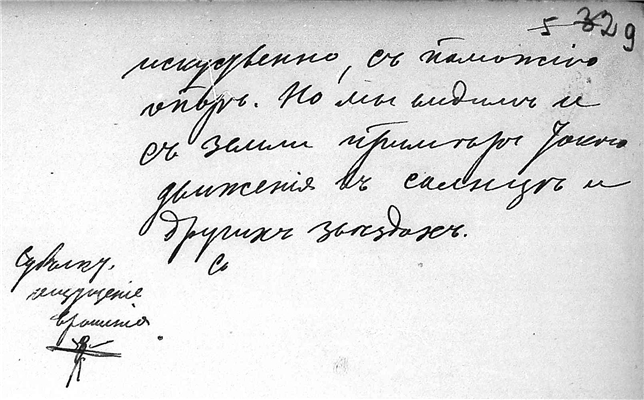 329
искуственно, съ помощію
опоръ. Но мы видимъ и
съ земли примѣръ такого
движенія въ солнцѣ и
другихъ звѣздахъ.
Со
ощущеніе